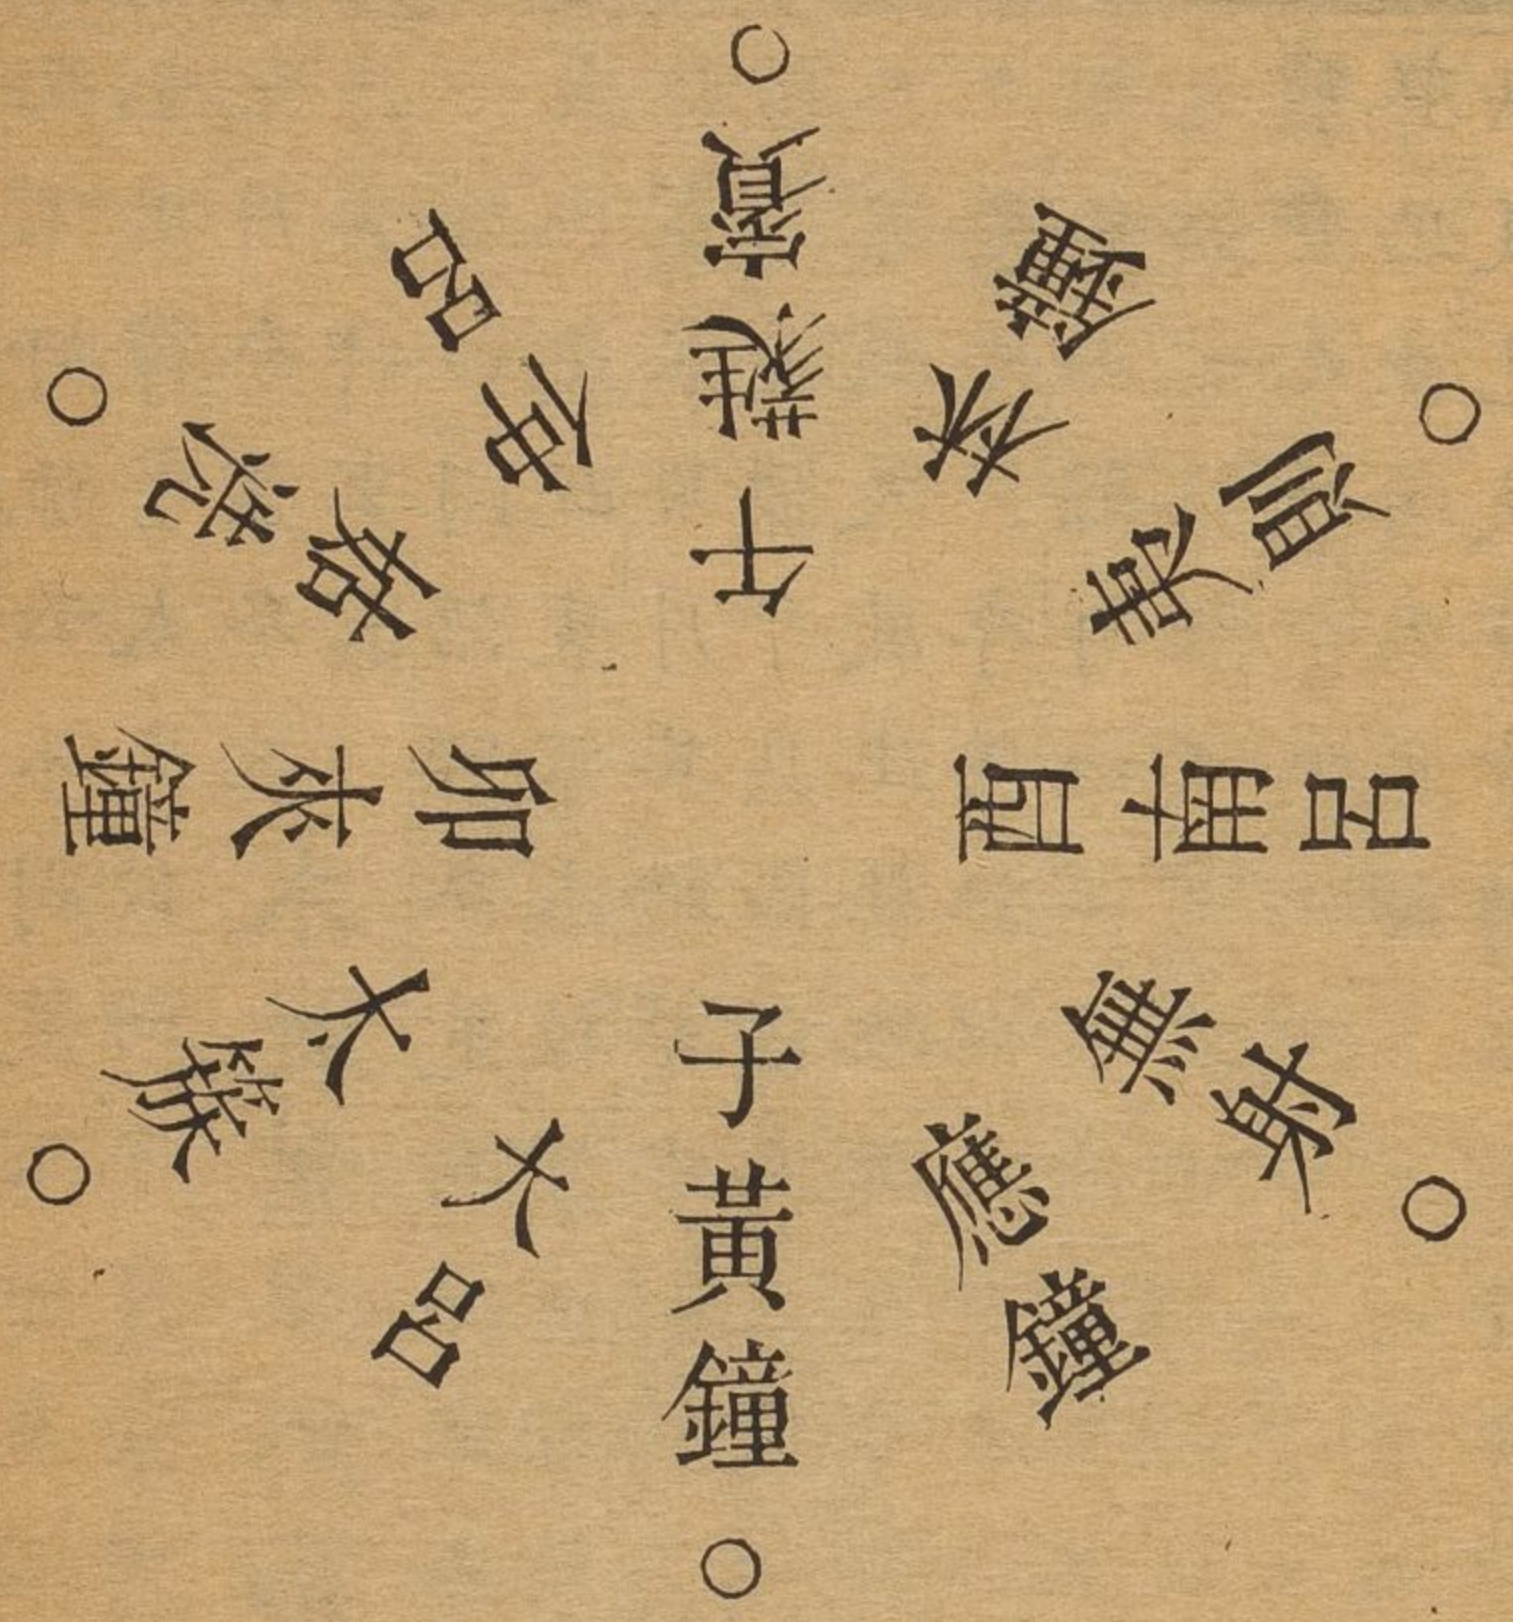 子黃鐘○
大呂
太簇○
卯夾鐘
姑洗○
仲呂
午蕤賓○
林鐘
夷則○
酉南呂
無射○
應鐘